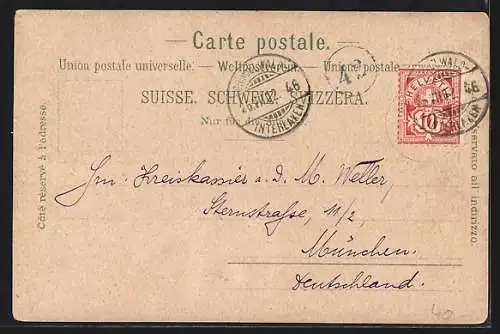 Carte postale.
Union postale universelle. — Weltpostverein. — Unione postale
SUISSE. SCHWEIZ. SVIZZERA.
Nur für die
Côté réservé à l'adresse.
46
INTERLAKEN
42
HELVETIA
10
46
INTERLAKEN
riservato all indirizzo.
Hrn. Kreiskassier a. D. M. Weller,
Sternstraße, 11/2,
München.
Deutschland.
40.-